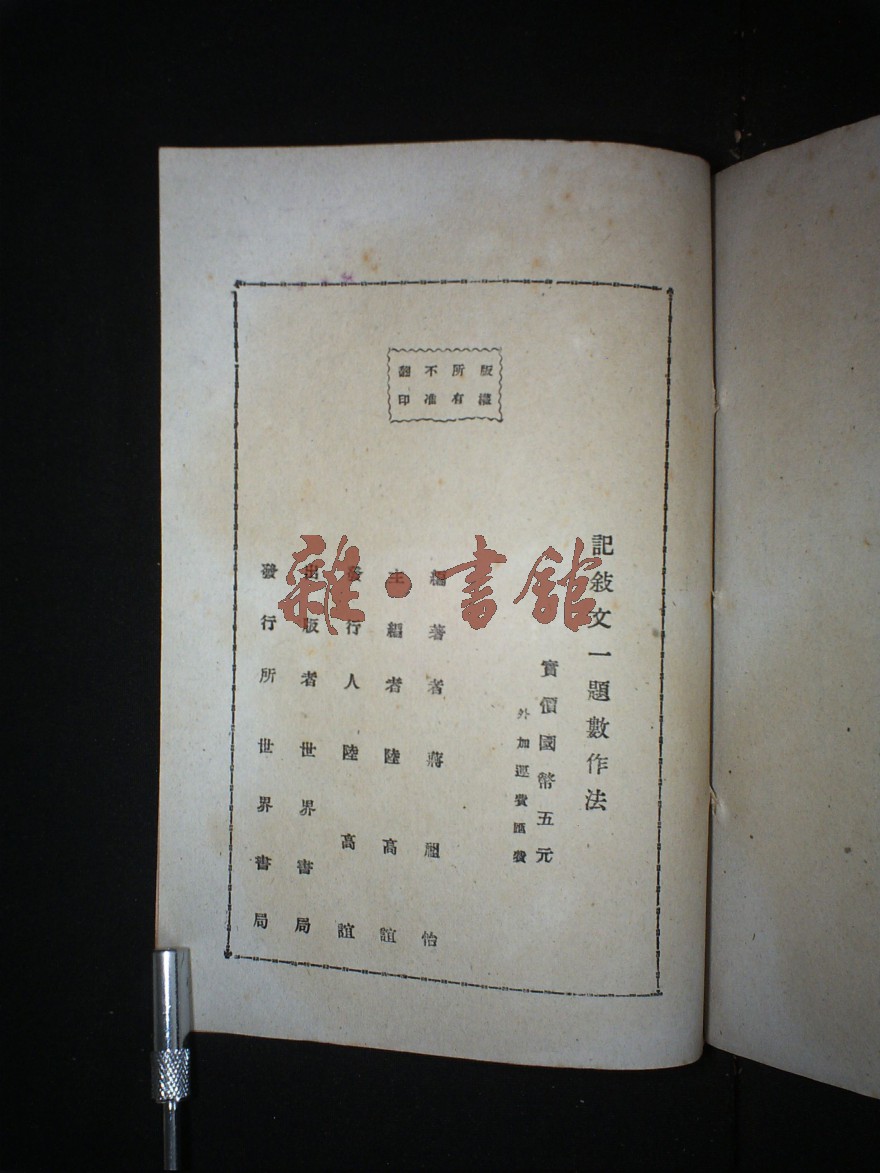 版權
所有
不准
翻印
記敍文一題數作法
實價國幣五元
外加運費匯費
編著者蔣祖怡
主編者陸高誼
發行人陸高誼
出版者世界書局
發行所世界書局
雜·書館